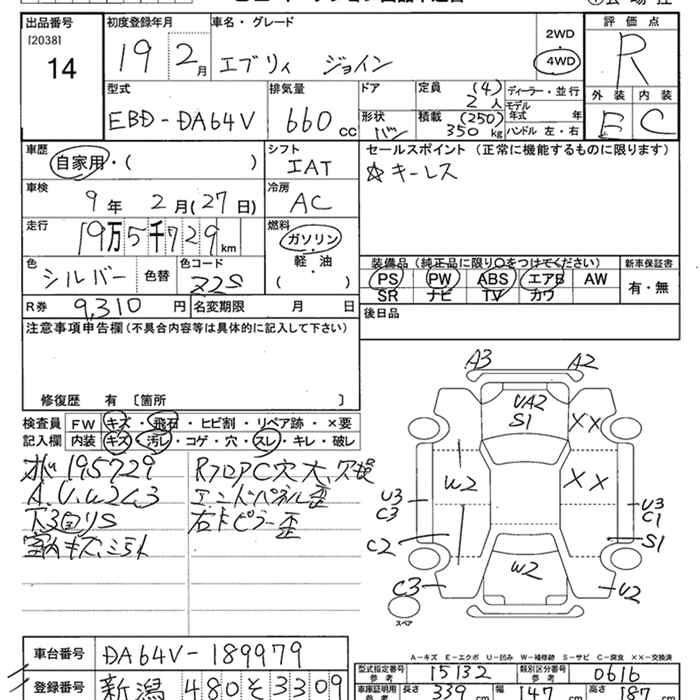 出品番号 初度登録年月 車名・グレード 評価点
[2038] 19 2月 エブリィ ジョイン 2WD R
14 4WD
型式 排気量 ドア 定員 (4) 2人 ディーラー・並行 外装 内装
EBD-DA64V 660cc 形状 バン 積載 (250) 350kg モデル年式 年 E C
ハンドル 左・右
車歴 シフト セールスポイント (正常に機能するものに限ります)
自家用・( ) IAT ☆キーレス
車検 冷房
9年 2月(27日) AC
走行 燃料
19万5千729km ガソリン
軽・油
( )
色 色替 色コード 装備品 (純正品に限り○をつけてください) 新車保証書
シルバー Z2S PS PW ABS エアB AW 有・無
SR ナビ TV カワ
R券 9,310円 名変期限 月 日 後日品
注意事項申告欄(不具合内容等は具体的に記入して下さい)
修復歴 有 [箇所 ]
検査員 FW キズ・飛石・ヒビ割・リペア跡・×要
記入欄 内装 キズ・汚レ・コゲ・穴・スレ・キレ・破レ
195729 RフロアC穴大、
A.U.W2C3 エンドパネル歪
下3回りS 右Bピラー歪
A3 A2
UA2
S1 ××
W2 ××
U3 C3 U3 C1
C2 S1
W2
C3 U2
スペア
A-キズ E-エクボ U-凹み W-補修跡 S-サビ C-腐食 ××-交換済
車台番号 DA64V-189979
型式指定番号 参考 15132 類別区分番号 参考 0616
登録番号 新潟 480 そ 3309
車庫証明用 参考 長さ 339cm 幅 147cm 高さ 187cm